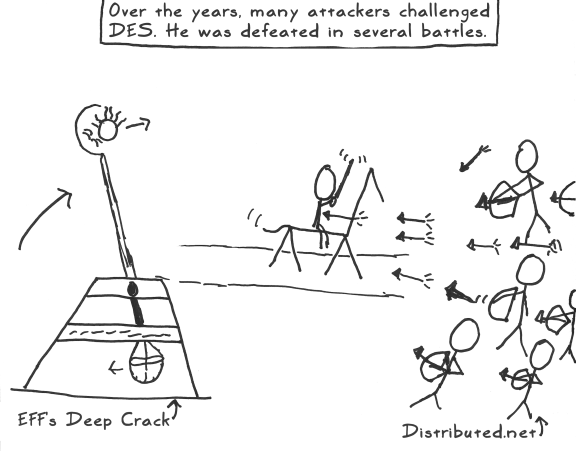 Over the years, many attackers challenged
DES. He was defeated in several battles.
EFF's Deep Crack
Distributed.net